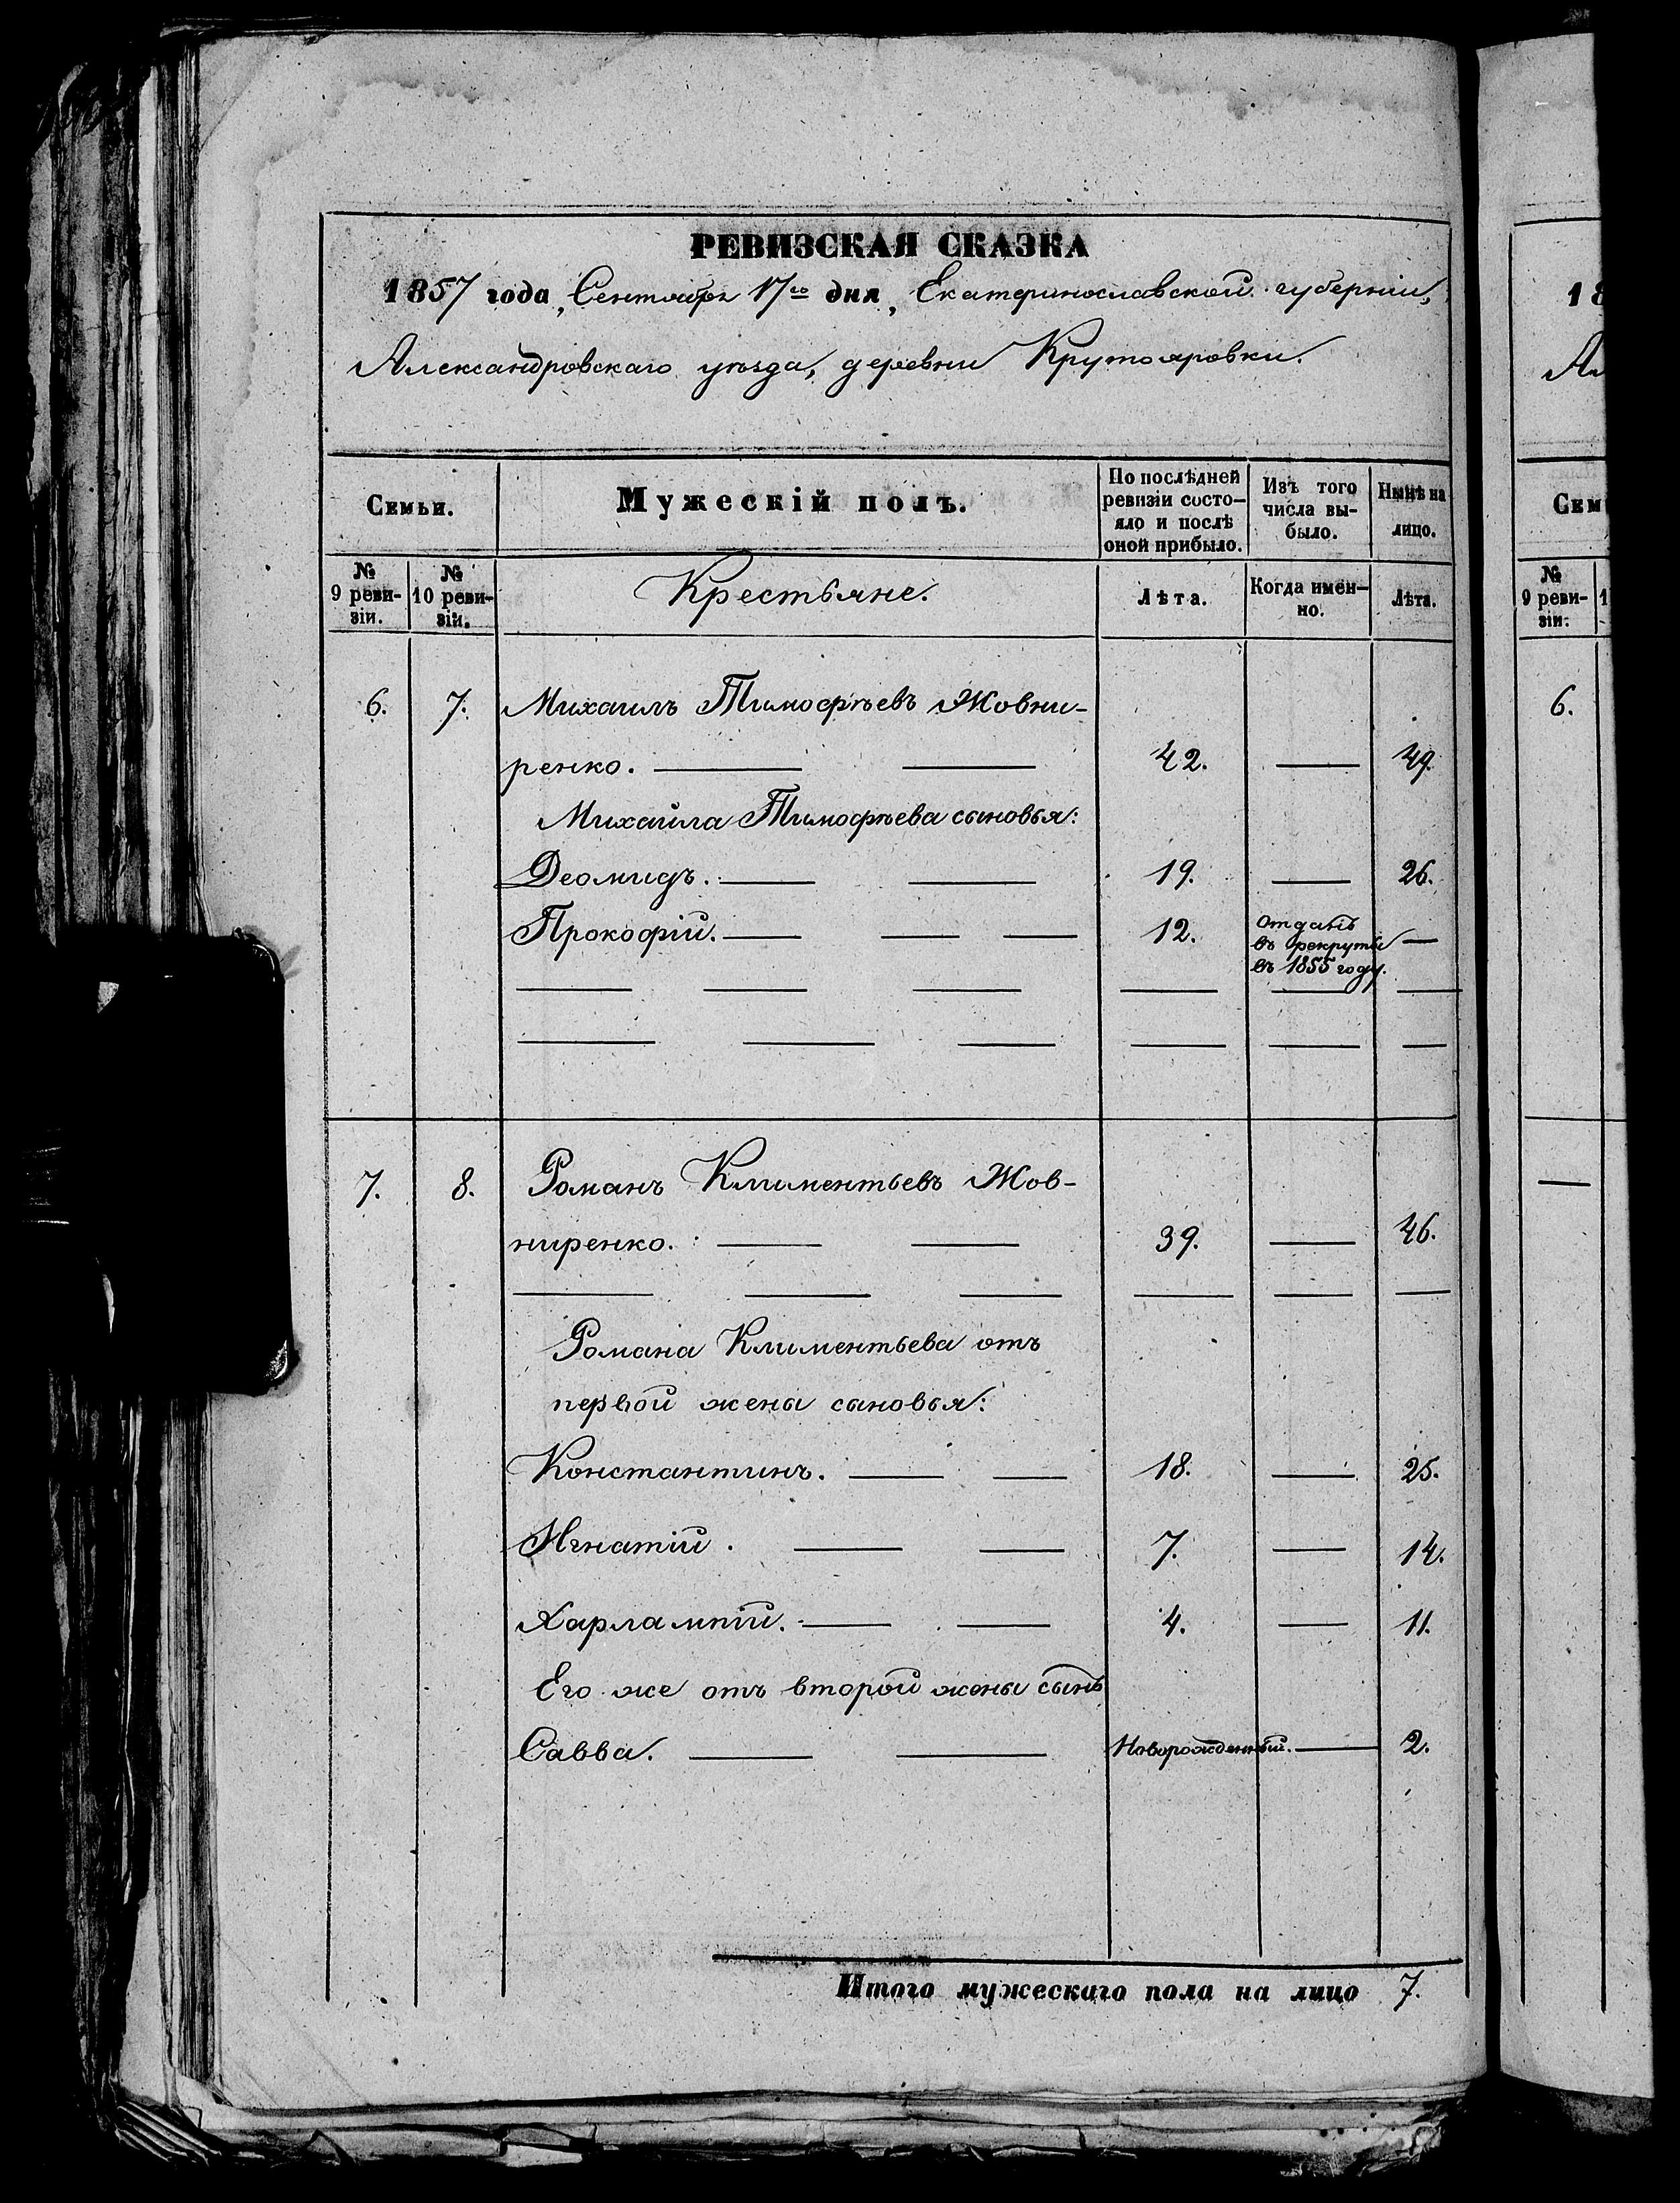 РЕВИЗСКАЯ СКАЗКА
1857 года, Сентября 17го дня, Екатеринославской губерніи,
Александровскаго уѣзда, деревни Крутояровки.
Семьи.
Мужескій полъ.
По послѣдней ревизіи состо-
яло и послѣ
оной прибыло.
Изъ того
числа вы-
было.
Нынѣ на
лицо.
№
9 реви-
зіи.
№
10 реви-
зіи.
Крестьяне.
Лѣта.
Когда имен-
но.
Лѣта.
6. 7. Михаилъ Тимофѣевъ Жовни-
ренко. — — 42. — 49.
Михаила Тимофѣева сыновья:
Деомидъ. — — 19. — 26.
Прокофій. — — — 12. Отданъ
въ рекруты —
въ 1855 году.
— — — — — —
— — — — — —
7. 8. Романъ Климентьевъ Жов-
ниренко. — — 39. — 46.
— — — — — —
Романа Климентьева отъ
первой жены сыновья:
Константинъ. — — 18. — 25.
Игнатій. — — 7. — 14.
Харлампій. — — 4. — 11.
Его же отъ второй жены сынъ
Савва. — — Новорожденный. — 2.
Итого мужескаго пола на лицо 7.
18
Ал
Сем
№
9 реви-
зіи.
1
6.
—